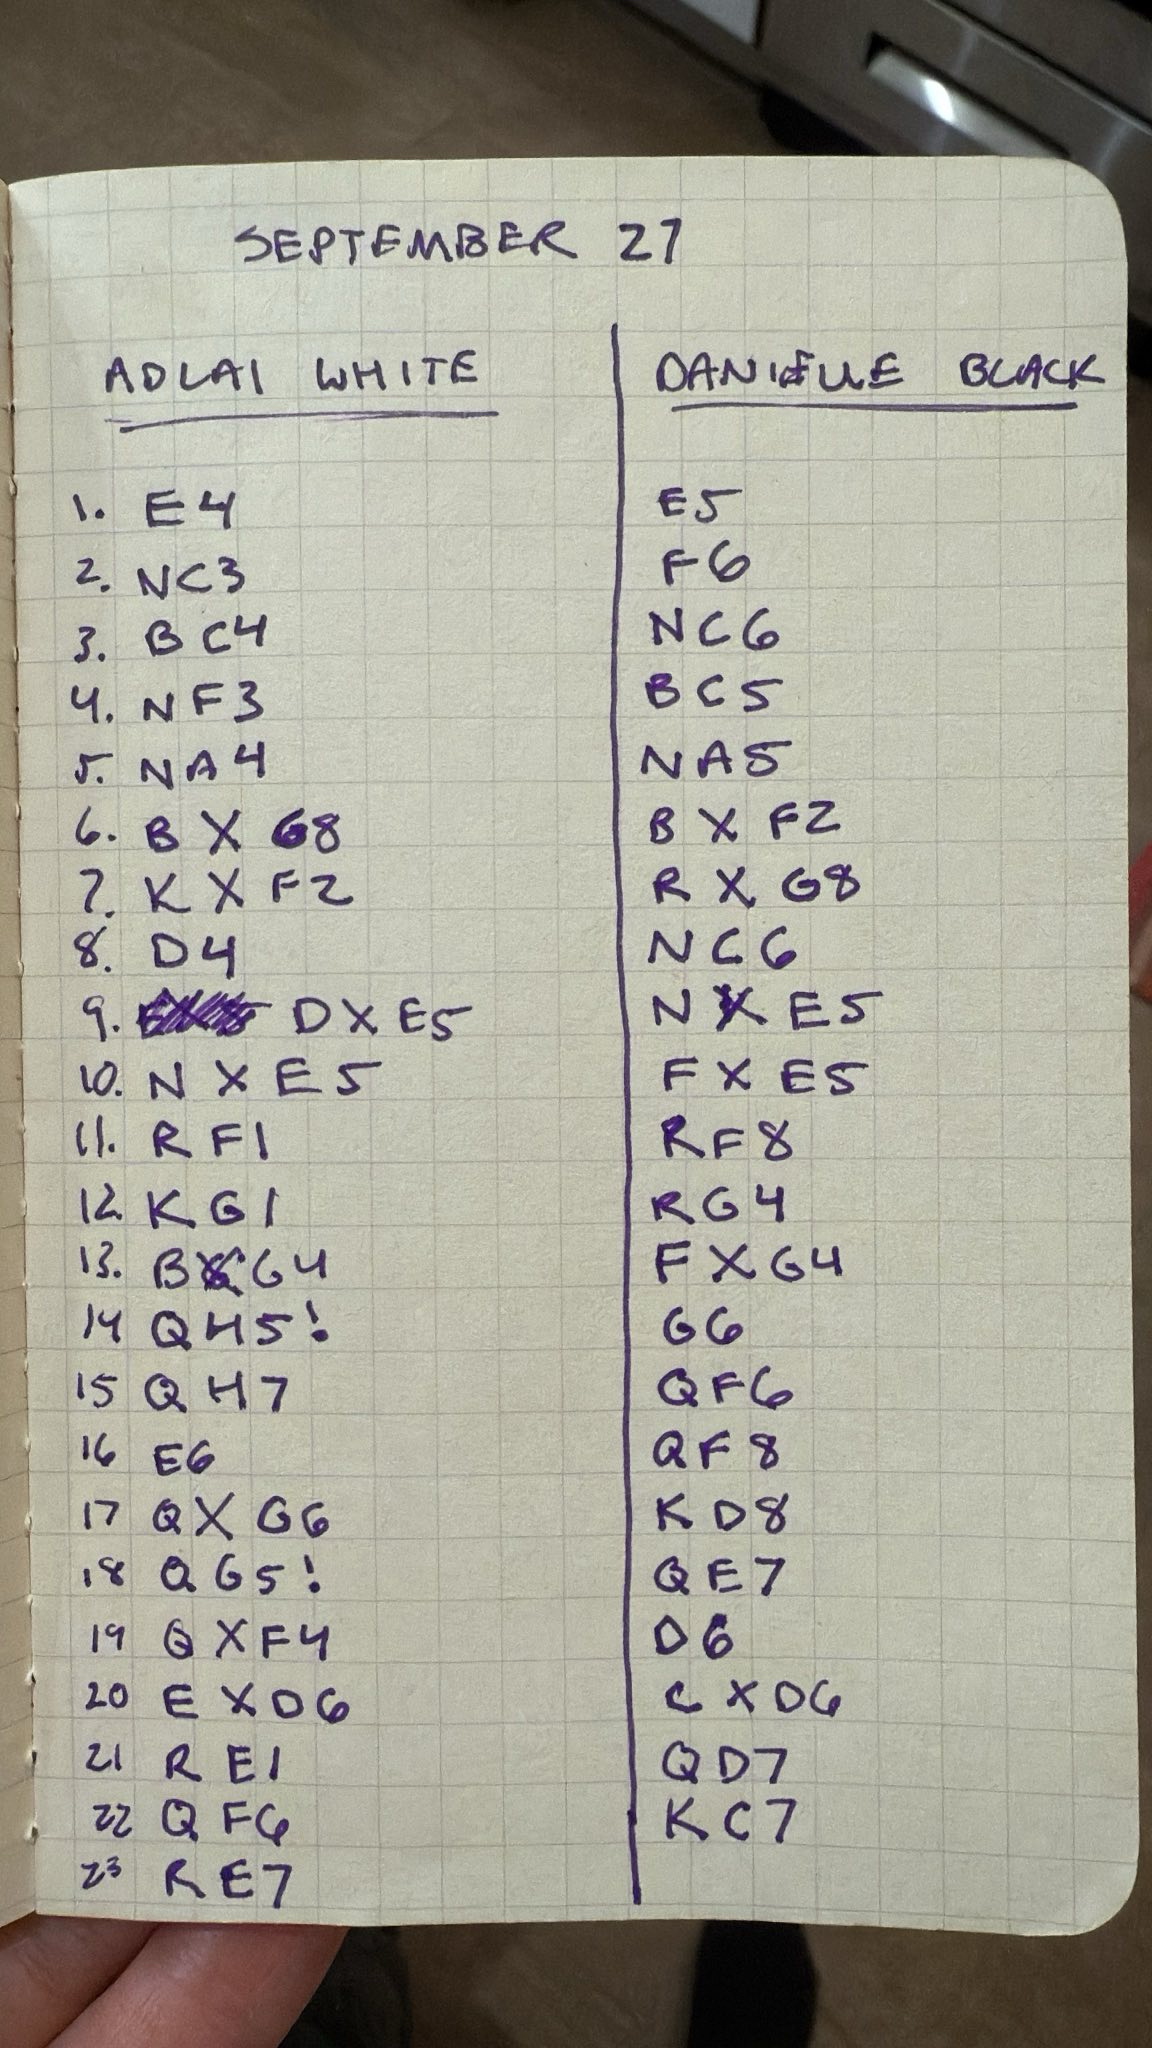 SEPTEMBER 27
ADLAI WHITE DANIELLE BLACK
1. E4 E5
2. NC3 F6
3. BC4 NC6
4. NF3 BC5
5. NA4 NA5
6. B X G8 B X F2
7. K X F2 R X G8
8. D4 NC6
9. D X E5 N X E5
10. N X E5 F X E5
11. RF1 RF8
12. KG1 RG4
13. BXG4 F X G4
14 QH5! G6
15 QH7 QF6
16 E6 QF8
17 Q X G6 KD8
18 QG5! QE7
19 Q X F4 D6
20 E X D6 C X D6
21 R E1 QD7
22 Q F6 KC7
23 R E7